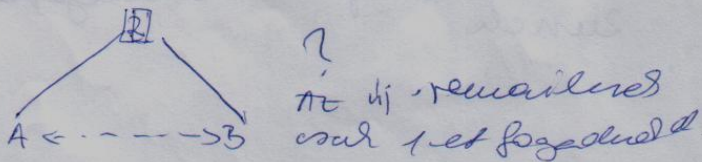 R
?
Az új remailerek
A <----> B csak 1-et fogadnak el